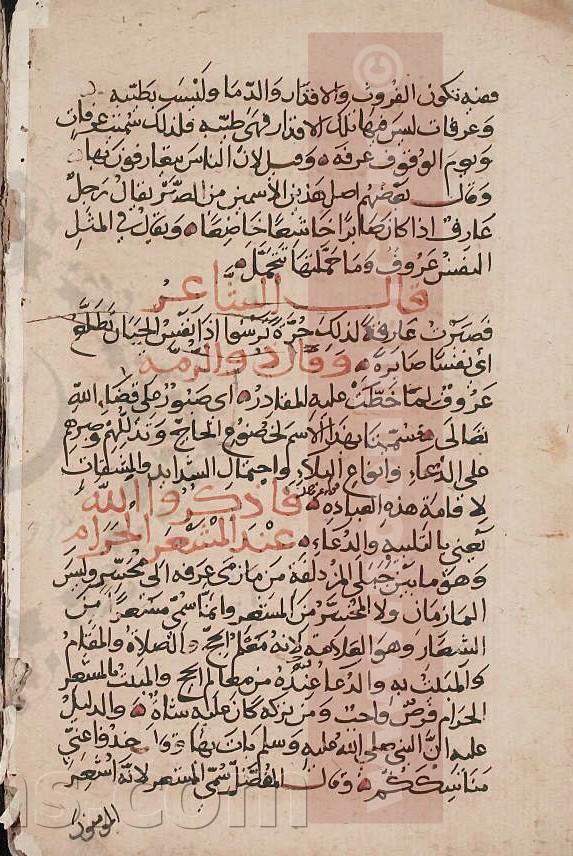 ففيه تكون الفروث والاقذار والدما وليست بطيبه
وعرفات ليس فيها تلك الاقذار فهى طيبه فلذلك سميت عرفات
ويوم الوقوف عرفة وقيل لان الناس يتعارفون بها
وقال بعضهم اصل هذين الاسمين من الصبر يقال رجل
عارف اذا كان صابرا خاشعا خاضعا ويقال في المثل
النفس عروف وما حملتها تتحمل
قال الشاعر
فصبرت عارفة لذلك حرة ترسوا اذا نفس الجبان تطلع
اى نفسا صابرة وقال ذو الرمة
عروف لما خطت عليه المقادر اى صبور على قضاء الله
تعالى فسميتا بهذا الاسم لخضوع الحاج وتذللهم وصبرهم
على الدعاء وانواع البلاء واحتمال الشدايد والمشقات
لاقامة هذه العبادة قوله عز وجل فاذكروا الله
عند المشعر الحرام يعني بالتلبية والدعاء
وهو ما بين جبلي المزدلفة من مازمى عرفه الى محسر وليس
المازمان ولا المحسر من المشعر وانما سمي مشعرا من
الشعار وهو العلامة لانه معلم الحج والصلاة والمقام
والمبيت به والدعا عنده من معالم الحج والمبيت بالمشعر
الحرام فرض واجب ومن تركه كان عليه شاة والدليل
عليه ان النبى صلى الله عليه وسلم بات بها وقال خذوا عني
مناسككم وقال المفضل سمي المشعر لانه اشعر
المومنون